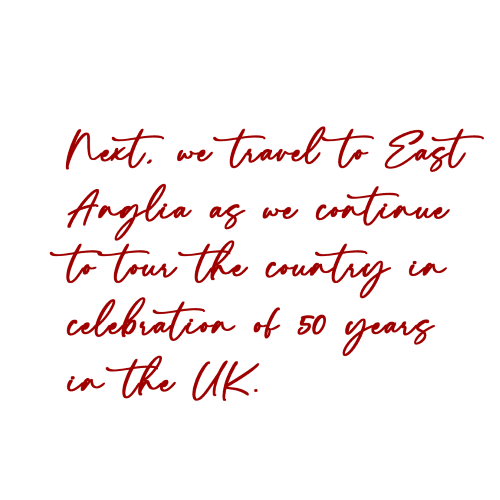 Next, we travel to East
Anglia as we continue
to tour the country in
celebration of 50 years
in the UK.